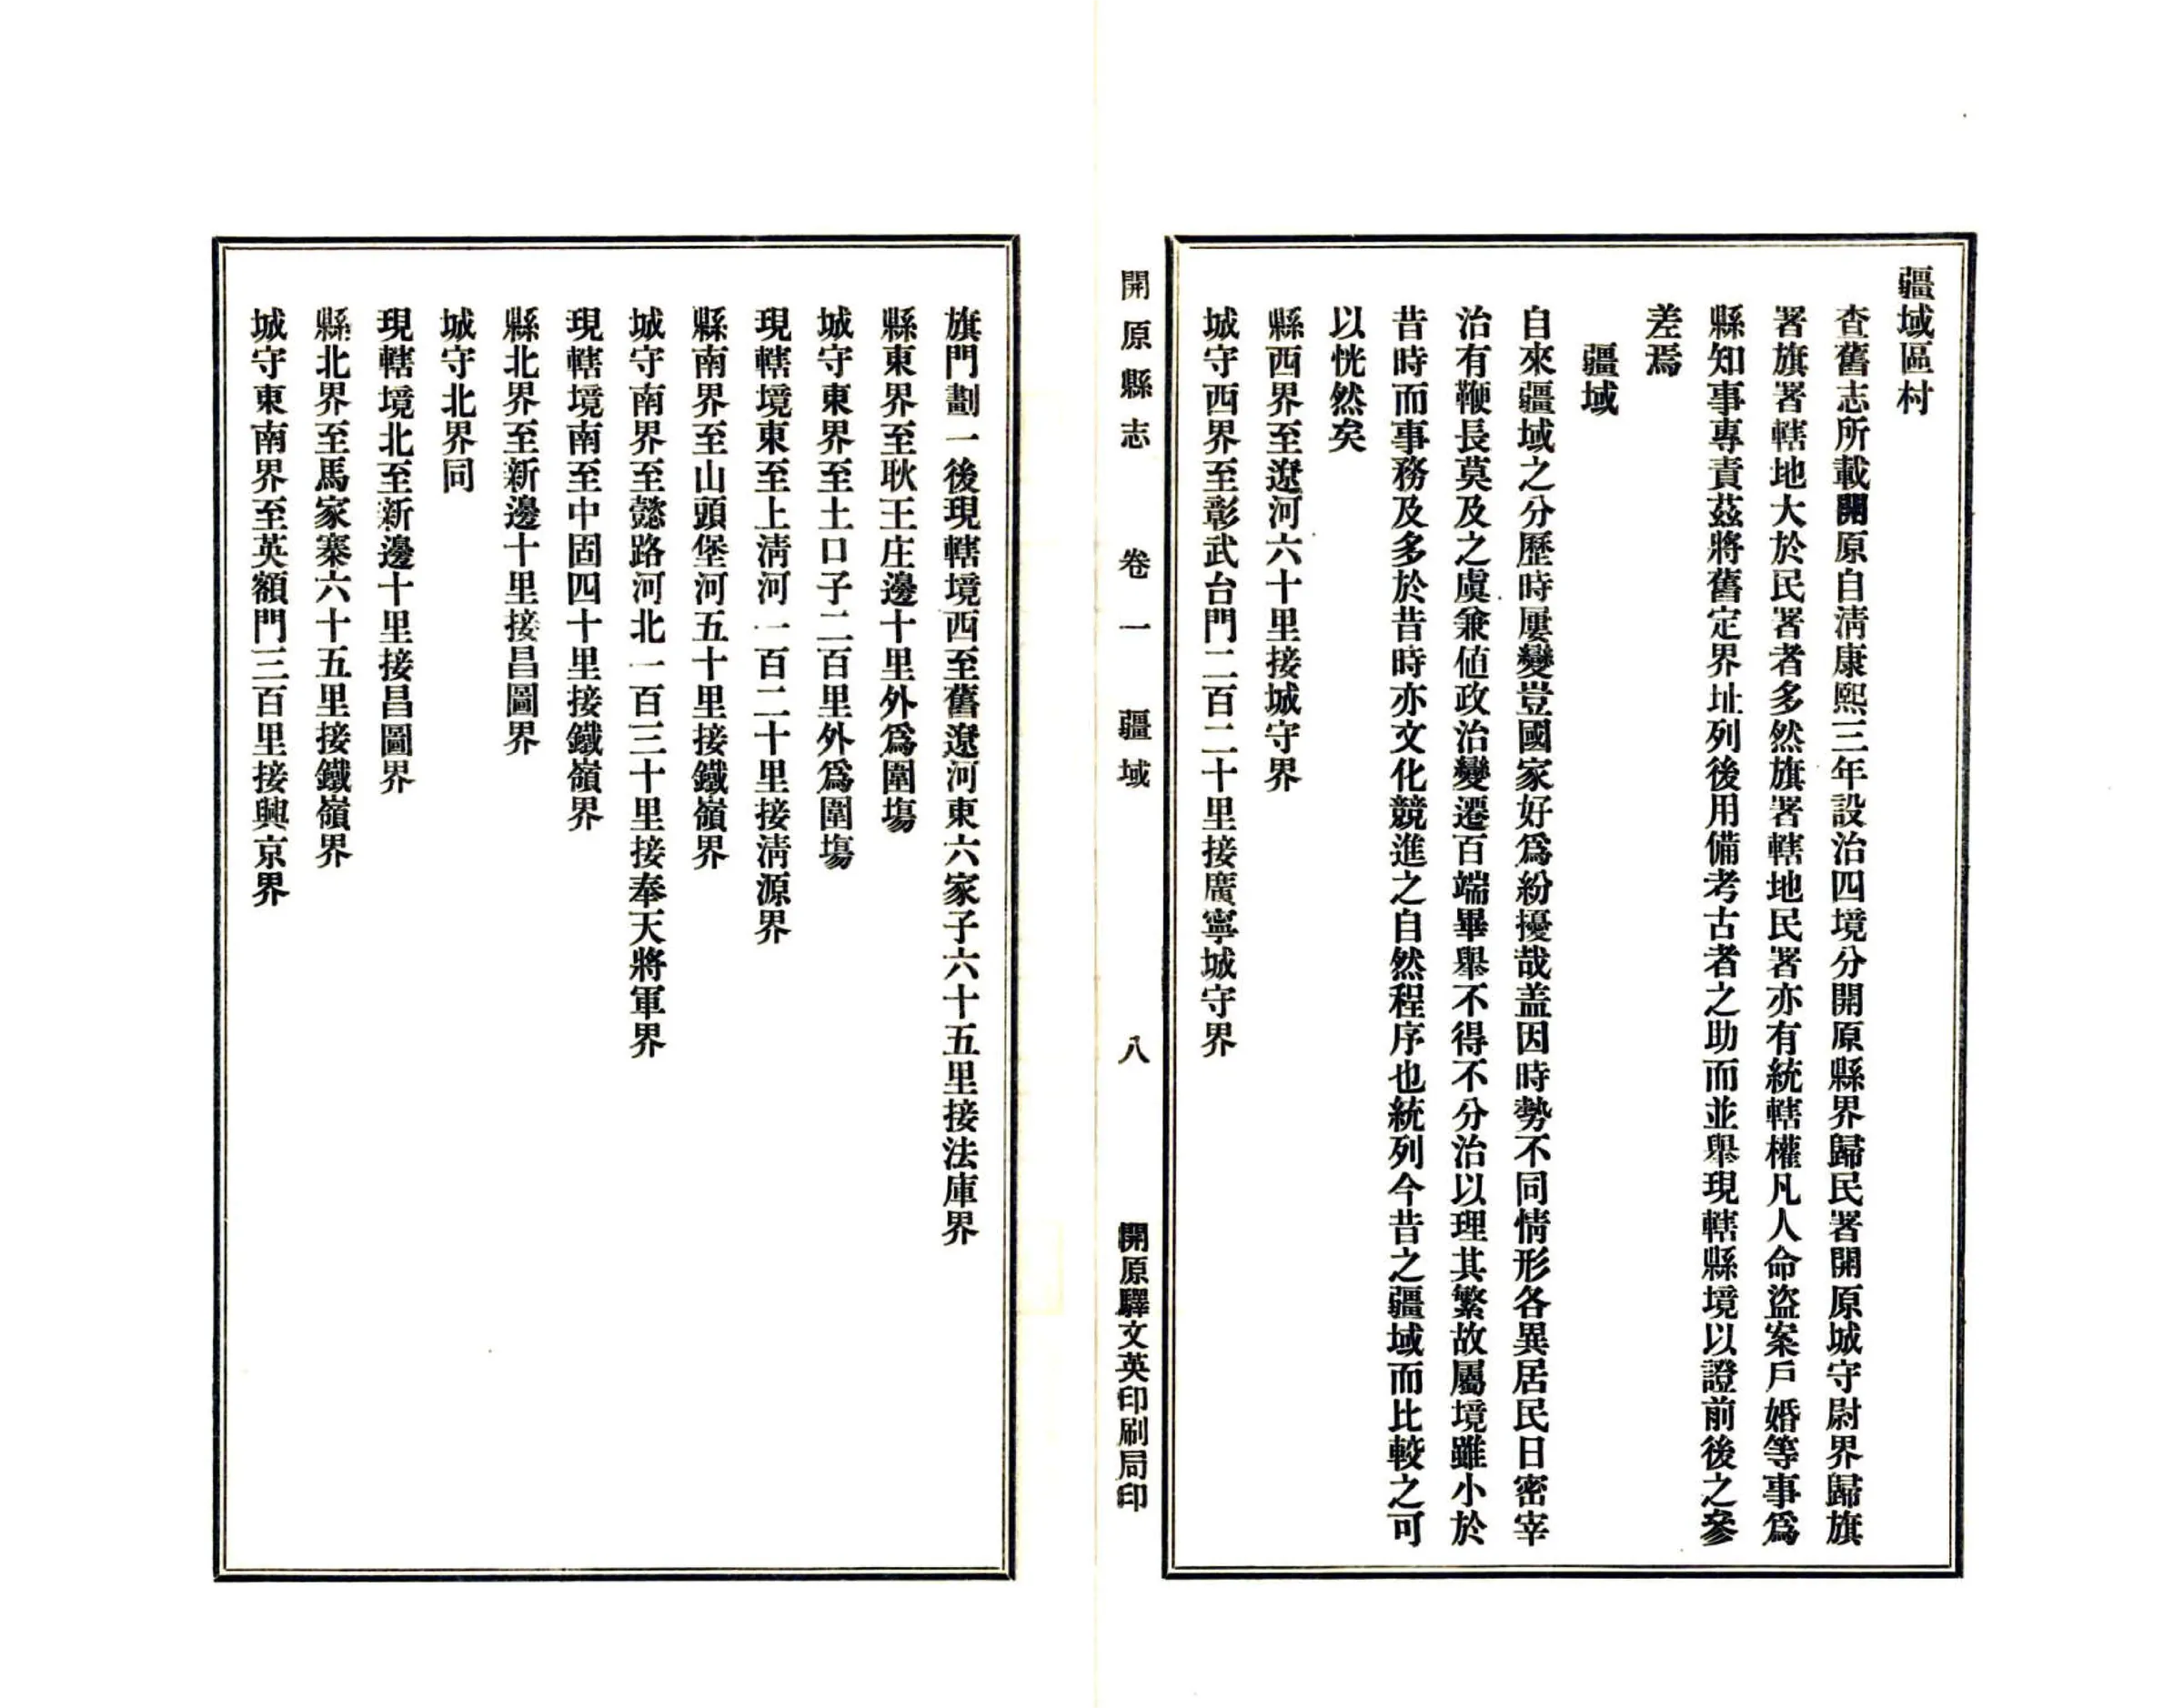 疆域區村
查舊志所載開原自淸康熙三年設治四境分開原縣界歸民署開原城守尉界歸旗
署旗署轄地大於民署者多然旗署轄地民署亦有統轄權凡人命盜案戶婚等事爲
縣知事專責茲將舊定界址列後用備考古者之助而並舉現轄縣境以證前後之參
差焉
疆域
自來疆域之分歷時屢變豈國家好爲紛擾哉盖因時勢不同情形各異居民日密宰
治有鞭長莫及之虞兼値政治變遷百端畢舉不得不分治以理其繁故屬境雖小於
昔時而事務及多於昔時亦文化競進之自然程序也統列今昔之疆域而比較之可
以恍然矣
縣西界至遼河六十里接城守界
城守西界至彰武台門二百二十里接廣寧城守界
開原縣志 卷一 疆域 八 開原驛文英印刷局印
旗門劃一後現轄境西至舊遼河東六家子六十五里接法庫界
縣東界至耿王庄邊十里外爲圍塲
城守東界至土口子二百里外爲圍塲
現轄境東至上淸河一百二十里接淸源界
縣南界至山頭堡河五十里接鐵嶺界
城守南界至懿路河北一百三十里接奉天將軍界
現轄境南至中固四十里接鐵嶺界
縣北界至新邊十里接昌圖界
城守北界同
現轄境北至新邊十里接昌圖界
縣北界至馬家寨六十五里接鐵嶺界
城守東南界至英額門三百里接興京界